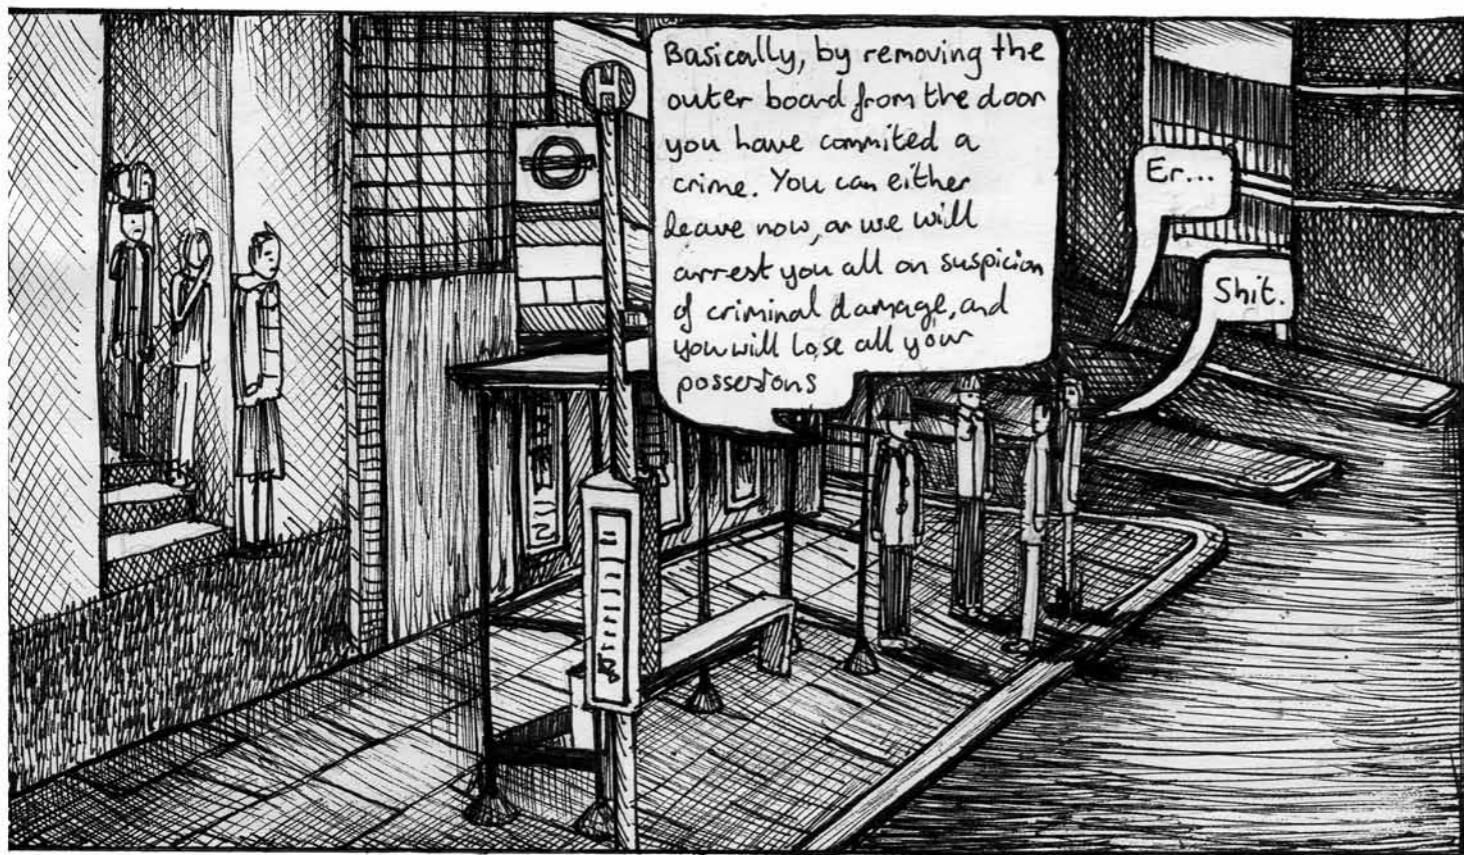 Basically, by removing the
outer board from the door
you have commited a
crime. You can either
leave now, or we will
arrest you all on suspicion
of criminal damage, and
you will lose all your
possesions
Er...
Shit.
H